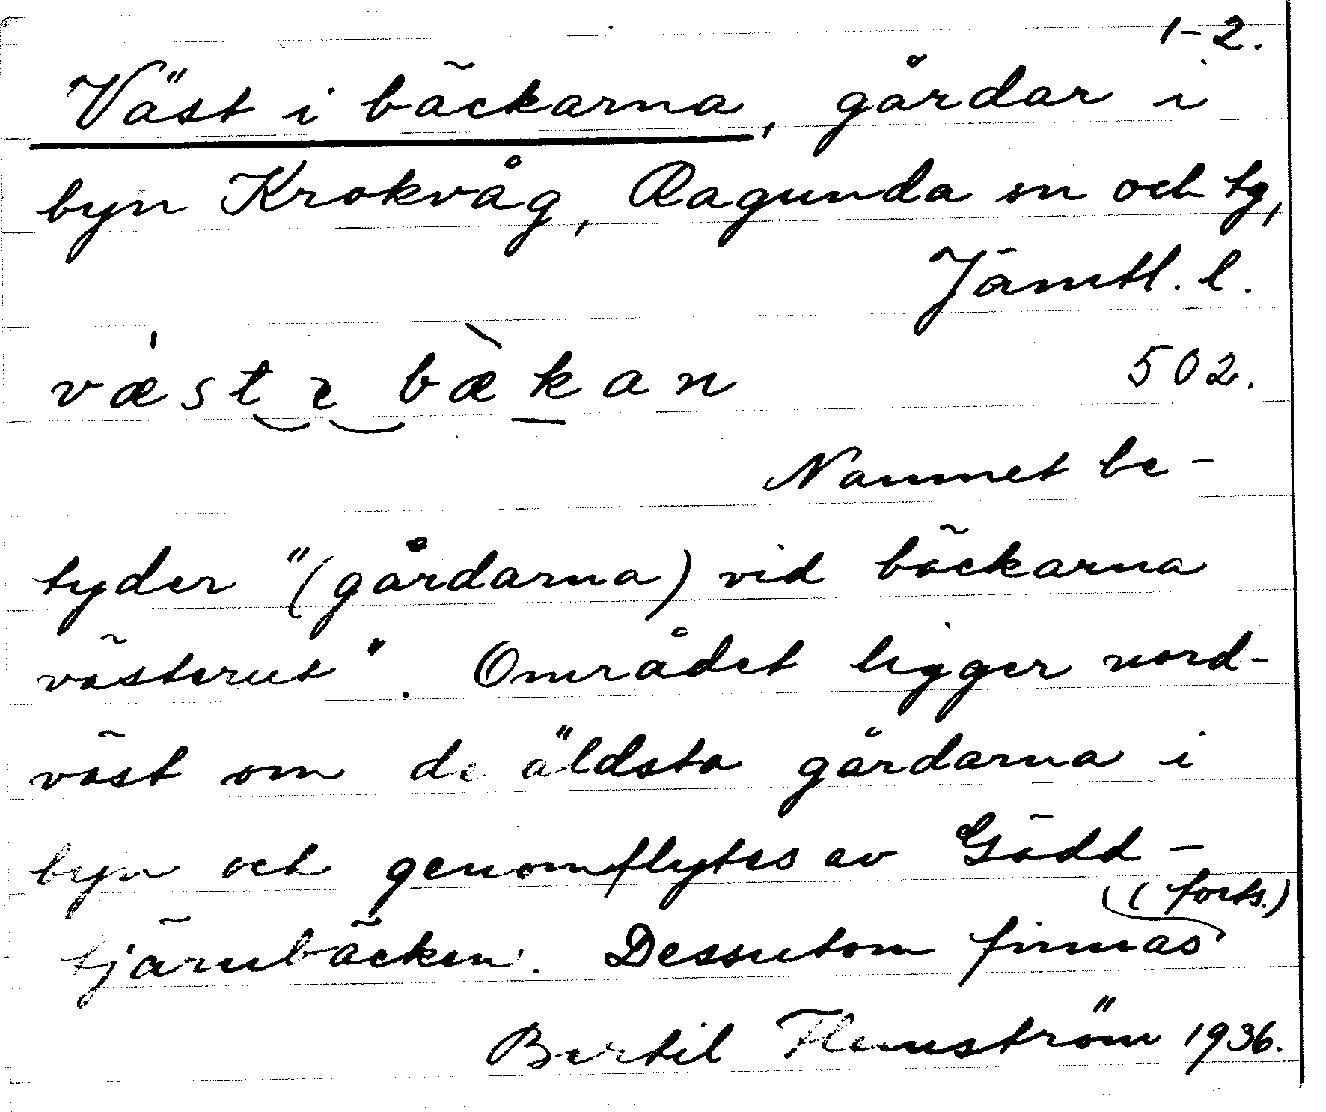 1-2.
Väst i bäckarna, gårdar i
byn Krokvåg, Ragunda sn och tg,
Jämtl. l.
væst ɩ bækan 502.
Namnet be-
tyder "(gårdarna) vid bäckarna
västerut". Området ligger nord-
väst om de äldsta gårdarna i
byn och genomflytes av Gädd-
(forts.)
tjärnbäcken. Dessutom finnas
Bertil Flemström 1936.